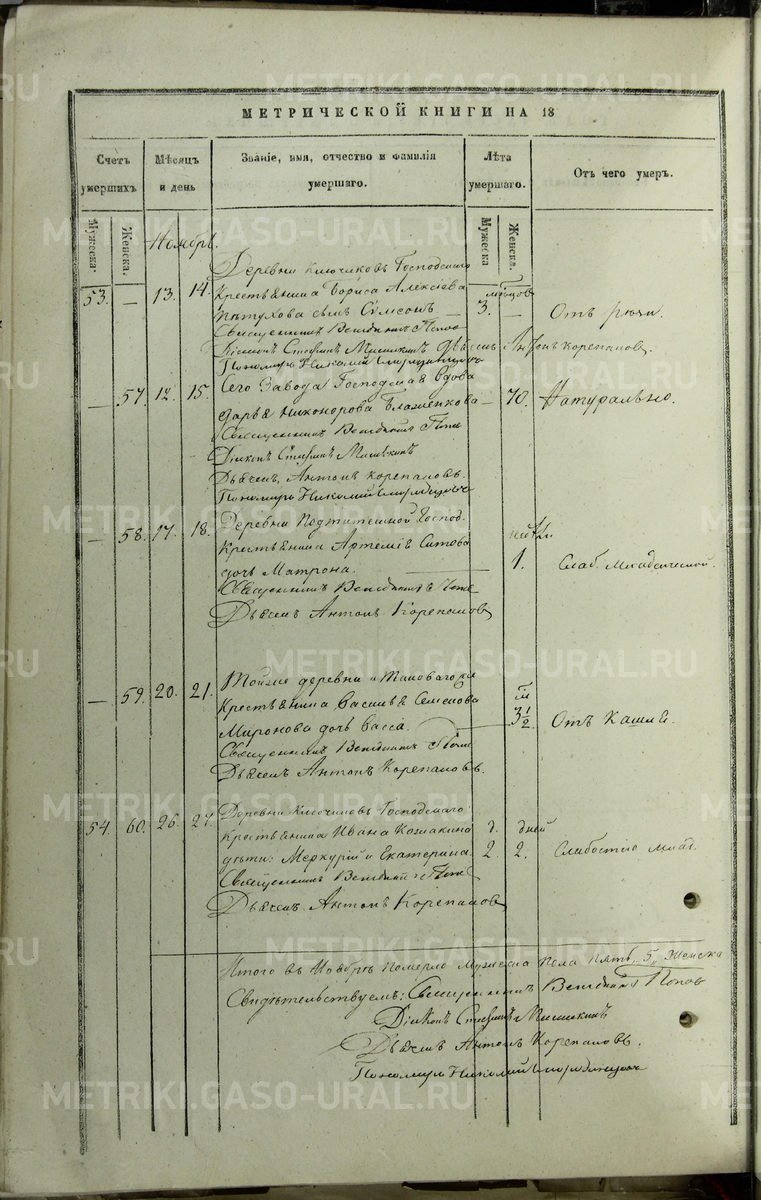 МЕТРИЧЕСКОЙ КНИГИ НА 18
Счетъ умершихъ
Мѣсяцъ и день
Званіе, имя, отчество и фамилія умершаго.
Лѣта умершаго.
Отъ чего умеръ.
Мужеска.
Женска.
Мужеска
Женска.
Ноябрь.
Деревни Ключиковъ Господскаго
53. — 13. 14. Крестьянина Бориса Алексѣева мѣсяцовъ
Пѣтухова сынъ Сѵмеонъ — 3. — Отъ
Священникъ Венедиктъ Поповъ
Діаконъ Стефанъ Мишкинъ Дьячекъ Антонъ Корепановъ.
Пономарь Николай
— 57. 12. 15. Сего Завода Господская Вдова
Дарья Никонорова — 70. Натурально.
Священникъ Венедиктъ Поповъ
Діаконъ Стефанъ Мишкинъ
Дьячекъ Антонъ Корепановъ.
Пономарь Николай
— 58. 17. 18. Деревни Господ.
Крестьянина Артемія Ситова
дочь Матрона. — 1. Слаб. Младенческой.
Священникъ Венедиктъ Поповъ
Дьячекъ Антонъ Корепановъ
— 59. 20. 21. Тойже деревни и Таковагоже
Крестьянина Василья Семенова
Миронова дочь Васса. — 3½ Отъ Кашля.
Священникъ Венедиктъ Поповъ
Дьячекъ Антонъ Корепановъ.
54. 60. 26. 27. Деревни Ключиковъ Господскаго
Крестьянина Ивана д. дней
дѣти: Меркурій и Екатерина. 2. 2. Слабостію млад.
Священникъ Венедиктъ Поповъ
Дьячекъ Антонъ Корепановъ
Итого въ Ноябрѣ померло Мужеска пола пять „5„ Женска
Свидѣтельствуемъ: Священникъ Венедиктъ Поповъ
Діаконъ Стефанъ Мишкинъ
Дьячекъ Антонъ Корепановъ.
Пономарь Николай
METRIKI.GASO-URAL.RU